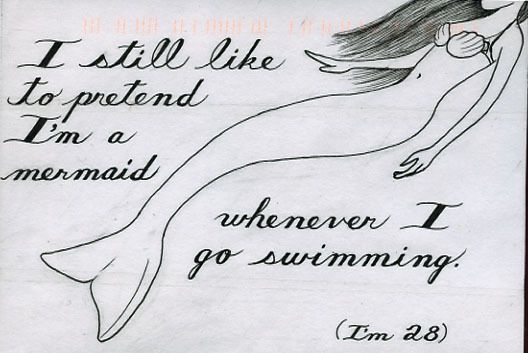 I still like
to pretend
I'm a
mermaid
whenever I
go swimming.
(I'm 28)